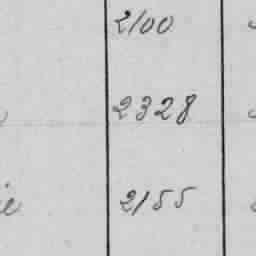 2100
2328
2155